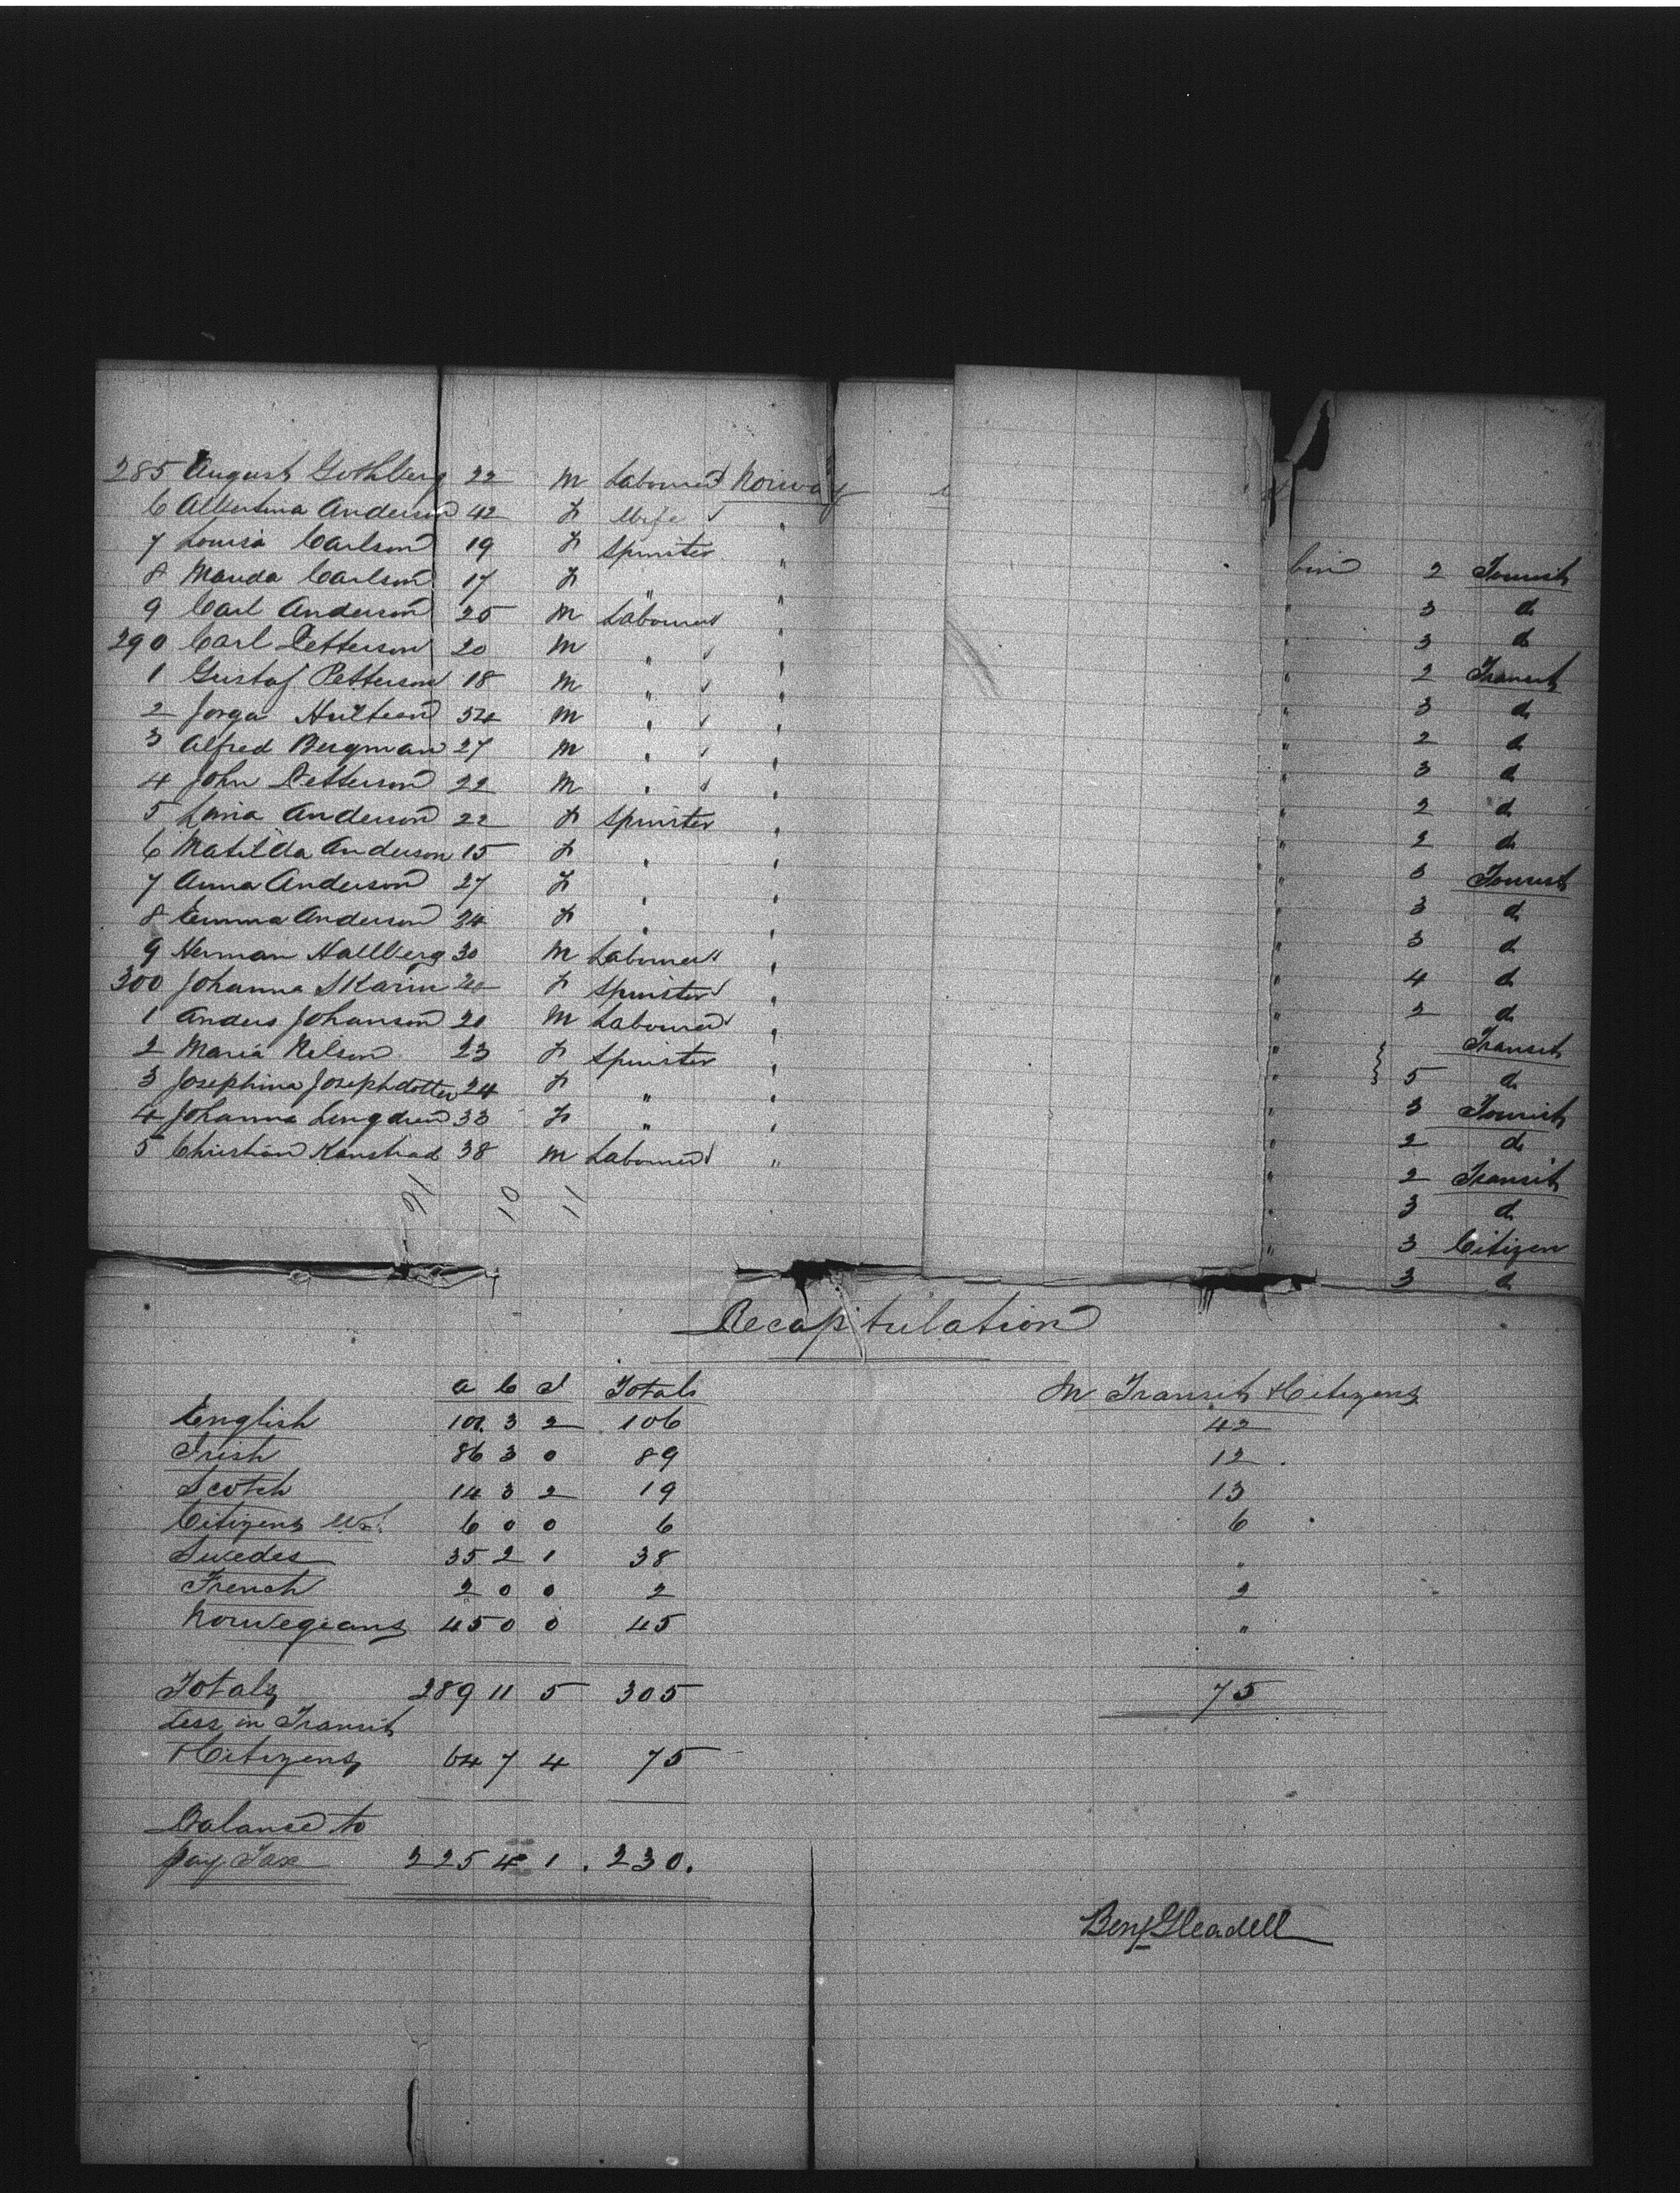 285 August Gothberg 22 M Labourer Norway
6 Albertina Anderson 42 F Wife "
7 Louisa Carlson 19 F Spinster "
8 Manda Carlson 17 F " "
9 Carl Anderson 25 M Labourer "
290 Carl Petterson 20 M " "
1 Gustaf Petterson 18 M " "
2 Jorga Hulteen 54 M " "
3 Alfred Bergman 27 M " "
4 John Petterson 22 M " "
5 Anderson 22 F Spinster "
6 Matilda Anderson 15 F " "
7 Anna Anderson 27 F " "
8 Emma Anderson 24 F " "
9 Herman Hallberg 30 M Labourer "
300 Johanna Skarin F Spinster "
1 Anders Johanson 20 M Labourer "
2 Maria Nelson 23 F Spinster "
3 Josephina Josephdotter 24 F " "
4 Johanna Lengdren 33 F " "
5 Christian Kanstrad 38 M Labourer "
bin 2 Tourist
" 3 do
" 3 do
" 2 Transit
" 3 do
" 2 do
" 3 do
" 2 do
" 2 do
" 3 Tourist
" 3 do
" 3 do
" 4 do
" 2 do
" Transit
" 5 do
" 3 Tourist
" 2 do
" 2 Transit
" 3 do
" 3 Citizen
3 do
21 10 11
Recapitulation
a C I Totals In Transit & Citizens
English 101 3 2 106 42
Irish 86 3 0 89 12
Scotch 14 3 2 19 13
Citizens US. 6 0 0 6 6
Swedes 35 2 1 38 "
French 2 0 0 2 2
Norwegians 45 0 0 45 "
Totals 289 11 5 305 75
Less in Transit
& Citizens 64 7 4 75
Balance to
pay Tax 225 4 1 . 230.
Benj Gleadell